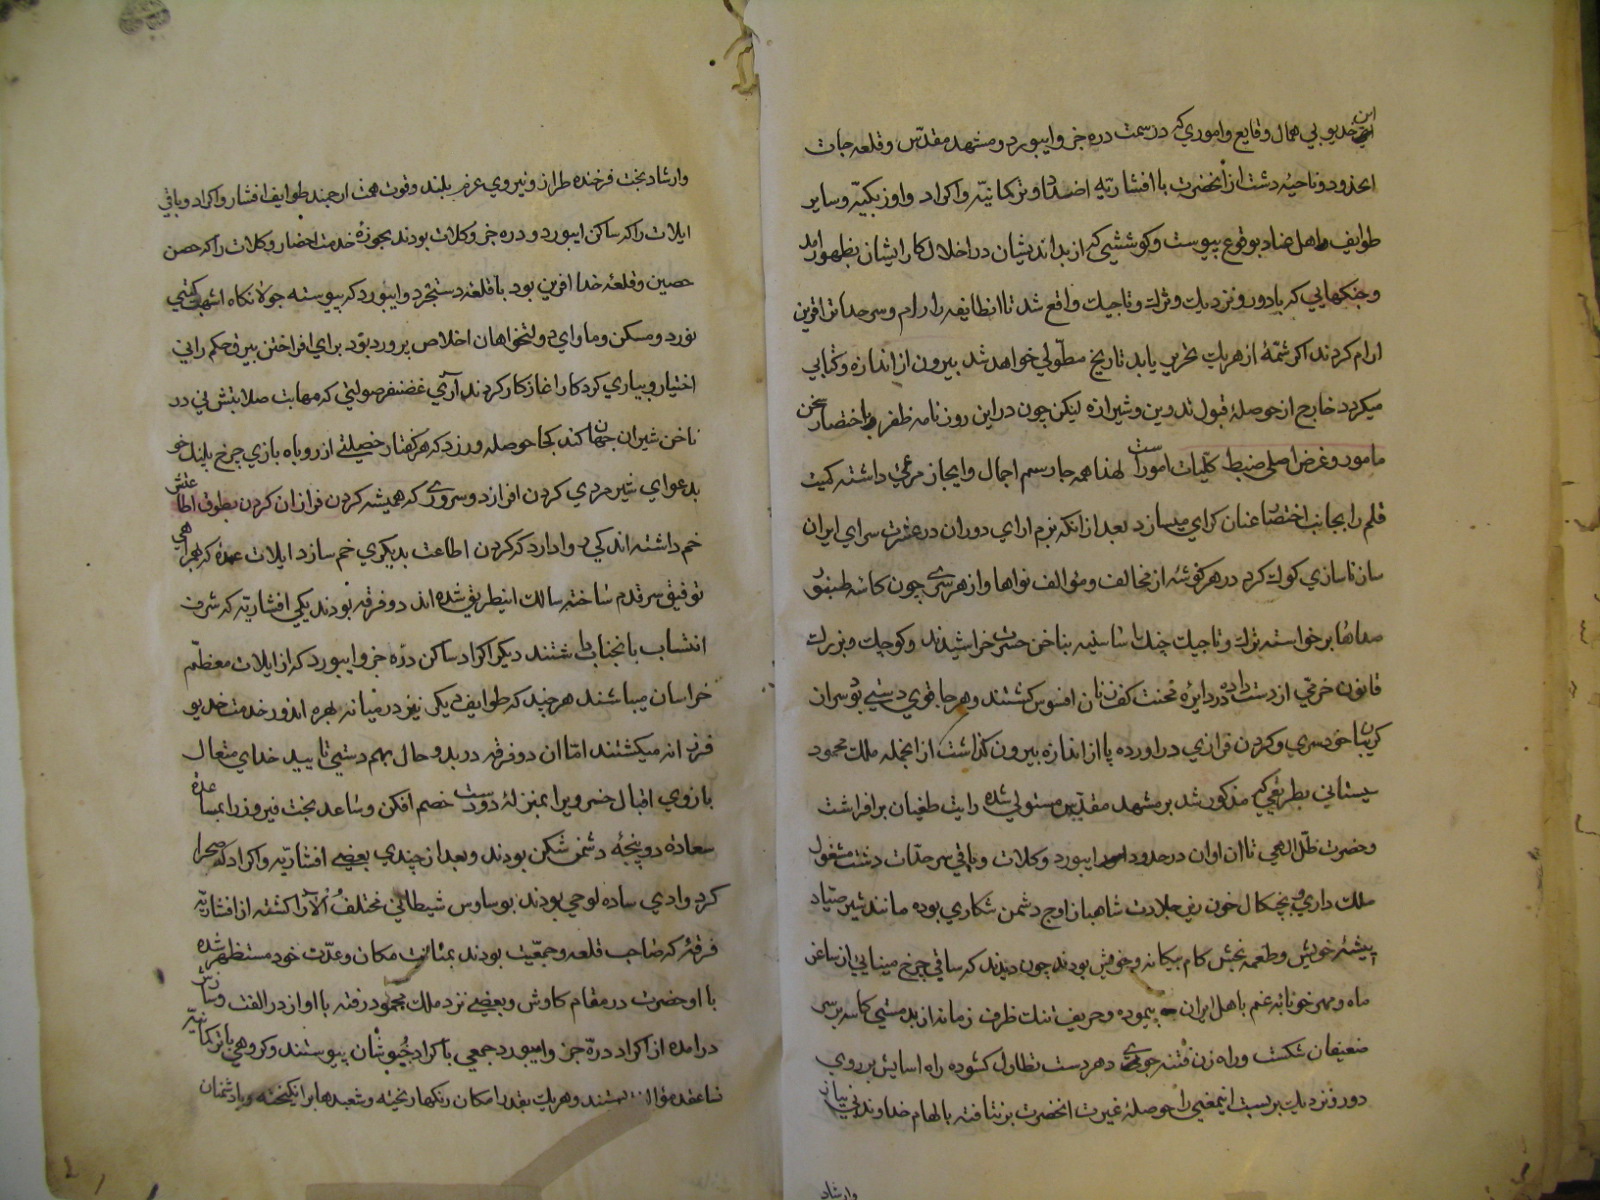 این خدیو بی همال وقایع واموری که در سمت دره جز وابیورد و مشهد مقدّس وقلعه جات
انحدود وناحیهٔ دشت از انحضرت با افشاریه اضداد وترکمانیّه واکراد واوزبکیّه وسایر
طوایف واهل عناد بوقوع پیوست وکوششی که از بداندیشان در اخلال کار ایشان بظهور امد
وجنکهایی که با دور ونزدیك وترك وتاجیك واقع شد تا انطایفه را رام وسرحدات را قرین
ارام کردند اکر شمّهٔ از هریك تحریر یابد تاریخ مطوّلی خواهد شد بیرون از اندازه وکتابی
میکردد خارج از حوصلهٔ قبول تدوین وشیرازه لیکن چون در این روزنامه ظفر باختصار سخن
مامور وغرض اصلی ضبط کلّیات امور است لهذا همه جا رسم اجمال وایجاز مرعی داشته کمیت
قلم را بجانب اختصار عنان کرای میسازد بعد از انکه بزم ارای دوران در عشرت سرای ایران
ساز ناسازی کوك کرد در هر کوشه از مخالف ومؤالف نواها واز هر سری چون کاسه طنبور
صداها برخواسته ترك وتاجیك چنك اسا سینه بناخن حسرت خراشیدند وکوچك وبزرك
قانون خرّمی از دست داده در دایرهٔ محنت کف زنان افسوس کشتند وهر جا قوی دستی بود سر از
کریبان خودسری وکردن فرازی در اورده پا از اندازه بیرون کذاشت از انجمله ملك محمود
سیستانی بطریقی که مذکور شد بر مشهد مقدّس مستولی شده رایت طغیان برافراشت
وحضرت ظلّ الهی تا ان اوان در حدود ابیورد وکلات وباقی سرحدّات دشت مشغول
ملك داری وبچنکال خون ریز جلادت شاهباز اوج دشمن شکاری بوده مانند شیر صیّاد
پیشهٔ خویش وطعمه بخش کام بیکانه وخویش بودند چون دیدند که ساقی چرخ مینایی از ساغر
ماه ومهر خونابه غم باهل ایران پیموده وحریف تنك ظرف زمانه از بد مستی کاسه بر سر
ضعیفان شکست وراه زن فتنه جوی دهر دست تطاول کشوده راه اسایش بر روی
دور ونزدیك بر بست اینمعنی را حوصلهٔ غیرت انحضرت بر نتافته بالهام خداوند بی نیاز
وارشاد
وارشاد بخت فرخنده طراز ونیروی عزم بلند وقوت همّت ارجمند طوایف افشار واکراد وباقی
ایلات را که ساکن ابیورد ودره جز وکلات بودند بحوزهٔ خدمت احضار وکلات را که حصن
حصین وقلعهٔ خدا افرین بود با قلعه دستجرد وابیورد که پیوسته جولانکاه اشهب کیتی
نورد ومسکن وماوای دولتخواهان اخلاص پرورد بود برای افراختن بیرق حکم رانی
اختیار وبیاری کردکار اغاز کار کردند آری غضنفر صولتی که مهابت صلابتش نی در
ناخن شیران جهان کند کجا حوصله ورزد که هر کفتار خصیلتی از روباه بازی چرخ پلنك خو
بدعوای شیر مردی کردن افرازد وسروری که همیشه کردن فرازان کردن بطوق اطاعتش
خم داشته اند کی روا دارد که کردن اطاعت بدیکری خم سازد ایلات عمده که بهمراهی
توفیق سر قدم ساخته سالك اینطریق شده اند دو فرقه بودند یکی افشاریّه که شرف
انتساب بانجناب داشتند دیکر اکراد ساکن درّه جز وابیورد که از ایلات معظّم
خراسان میباشند هر چند که طوایف دیکر نیز در میانه بهره اندوز خدمت خدیو
فرزانه میکشتند امّا ان دو فرقه در بدو حال بهم دستی تایید خدای متعال
بازوی اقبال خسروی را بمنزلهٔ دو دست خصم افکن وساعد بخت فیروز را بمساعدهٔ
سعادة دو پنجهٔ دشمن شکن بودند وبعد از چندی بعضی افشاریّه واکراد که صحرا
کرد وادی ساده لوحی بودند بوساوس شیطانی مختلف الآرا کشته از افشاریّه
فرقهٔ که صاحب قلعه وجمعّیت بودند بمتانت مکان وعدّت خود مستظهر شده
با او حضرت در مقام کاوش وبعضی نزد ملك محمود رفته با او از در الفت وسازش
درامده از اکراد درّه جز وابیورد جمعی باکراد خبوشان پیوستند وکروهی با ترکمانیّه
نسا عقد مؤالفت بستند وهریك بقدر امکان رنکها ریخته وشعبدها بر انکیخته وبا دشمنان